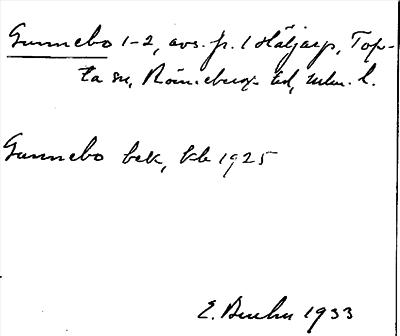 Gunnebo 1-2, avs. fr. 1 Häljarp, Top-
ta sn, Rönnebergs hd, Mlm. l.
Gunnebo bek, kb 1925
E. 1933